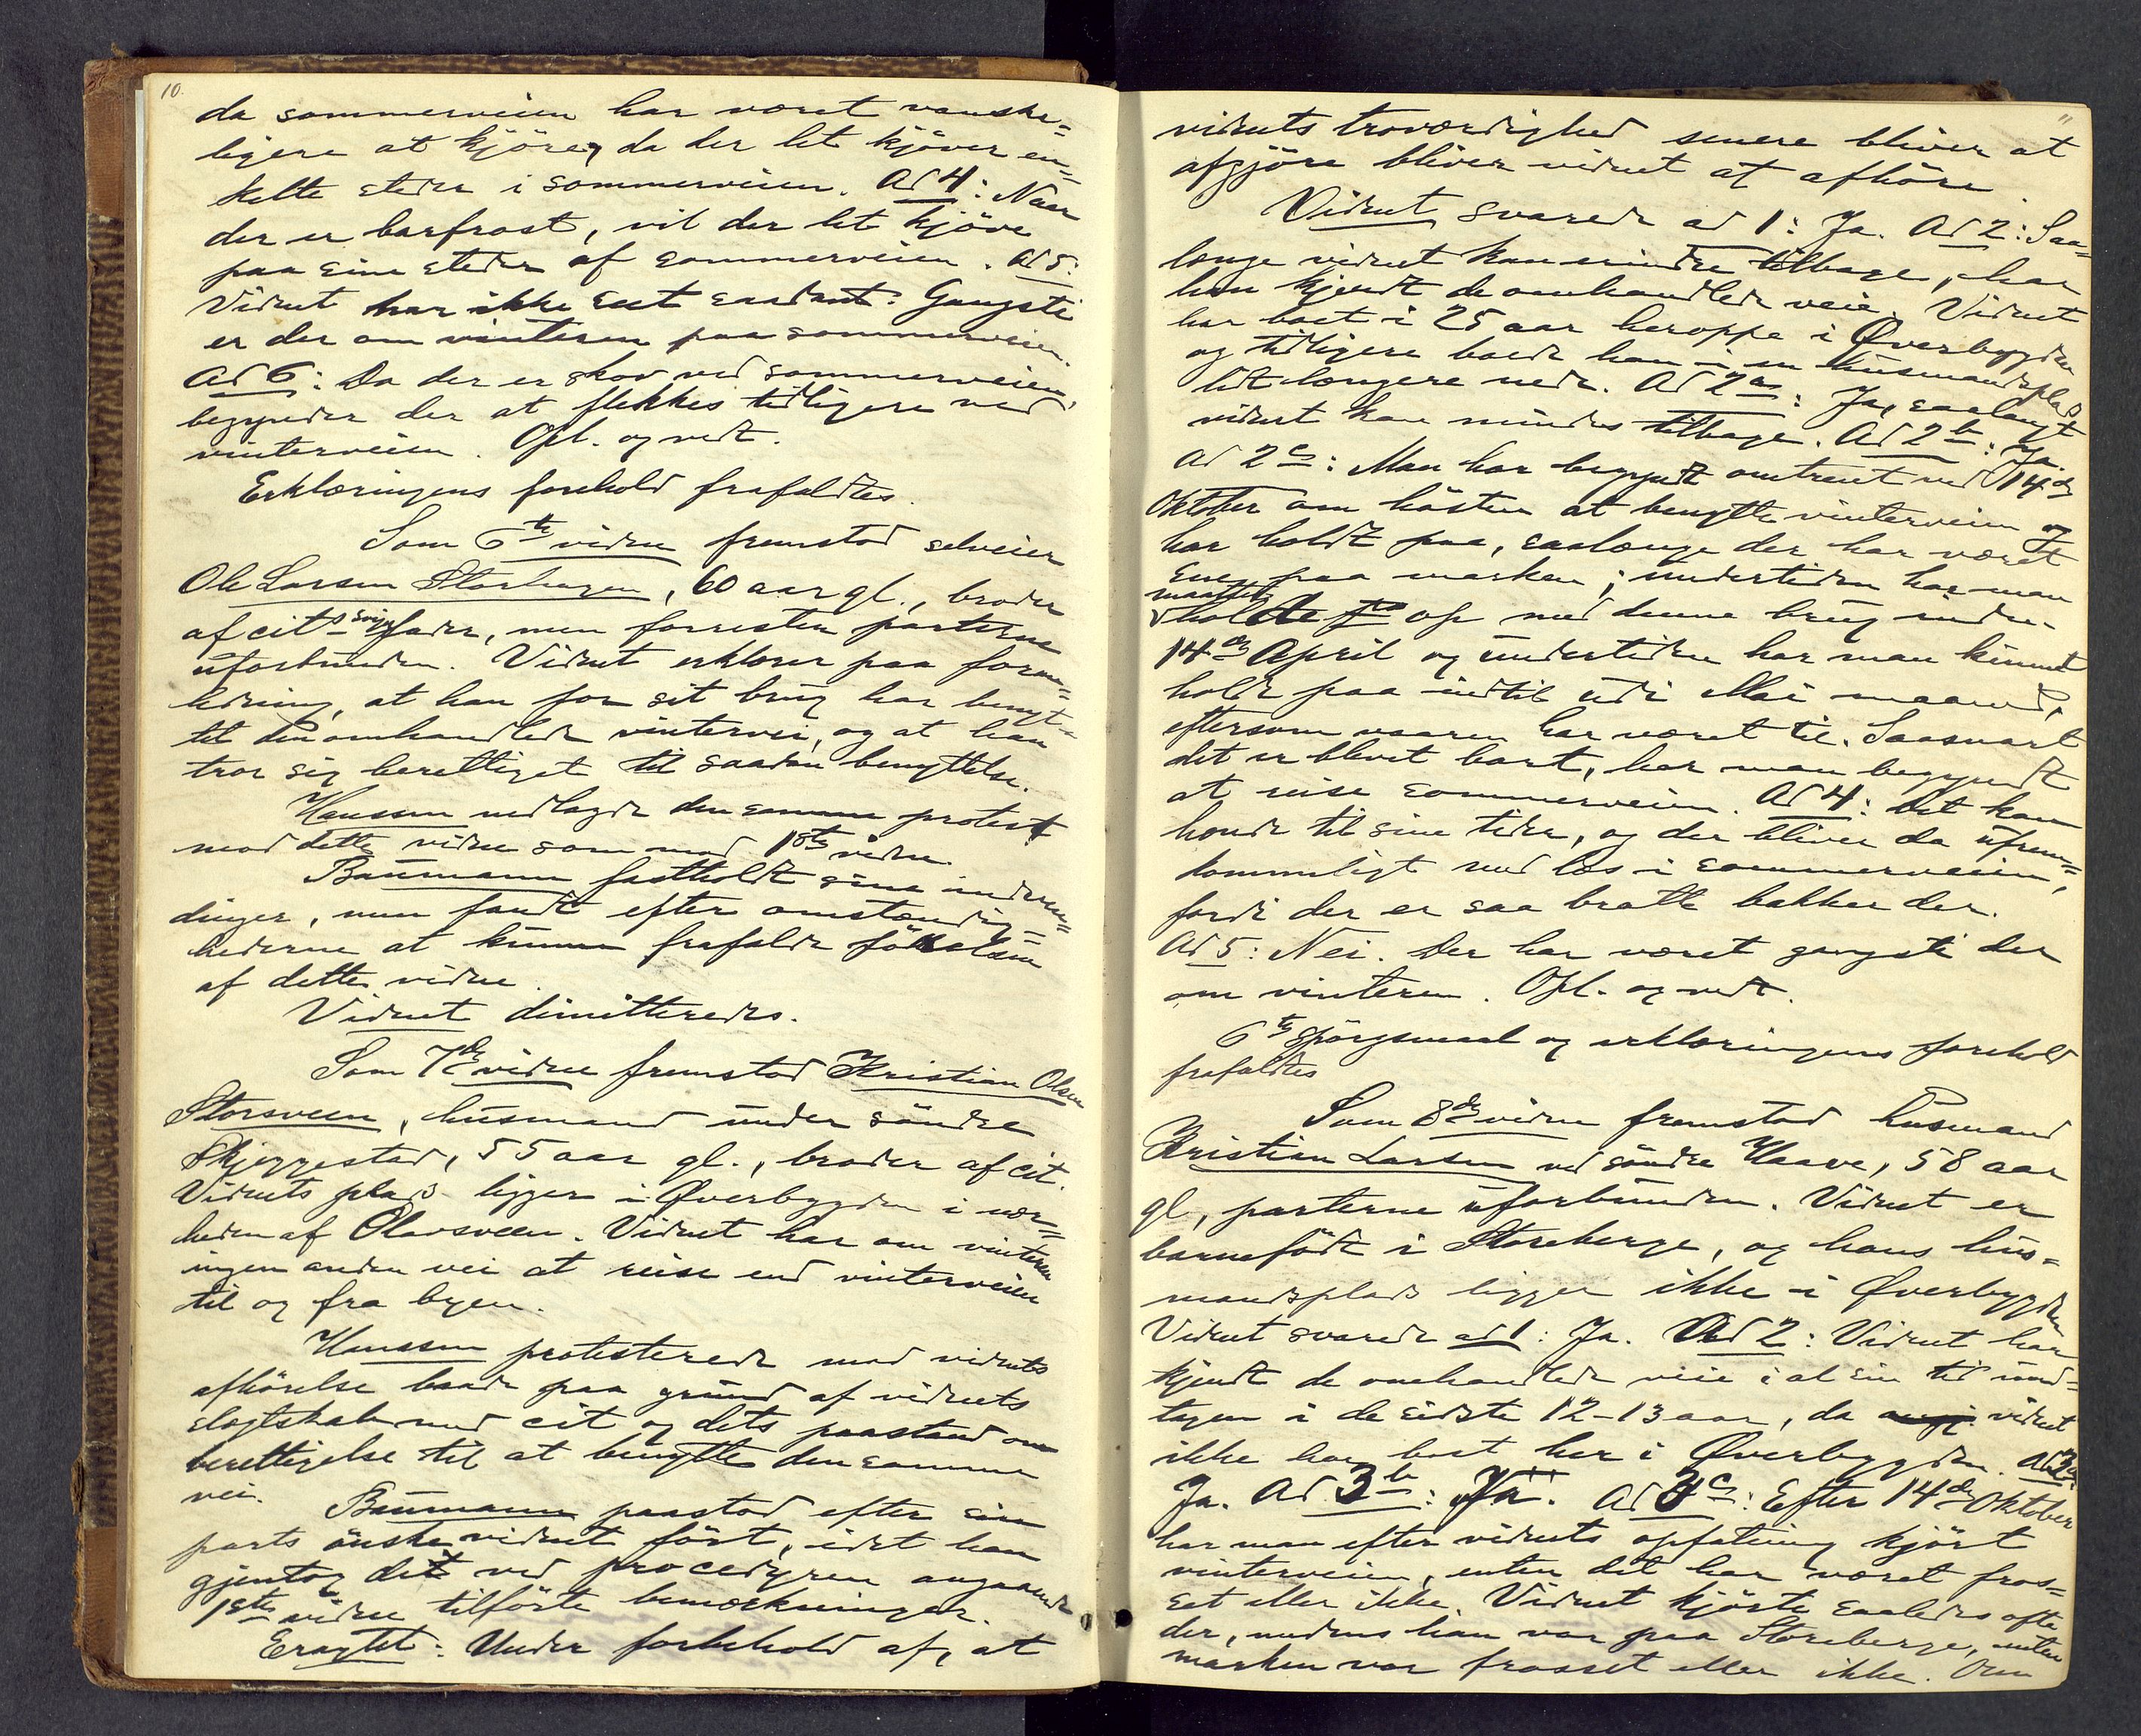 10.
da sommerveien har været vanske-
ligere at kjöre, da der let kjöver en-
kelte steder i sommerveien. Ad 4: Naar
der er barfrost, vil der let kjöve
paa sine steder af sommerveien. Ad 5:
Vidnet har ikke seet saadant. Gangsti
er der om vinteren paa sommerveien.
Ad 6: Da der er skov ved sommerveien,
begynder der at flekkes tidligere ved
vinterveien. Opl. og vedt.
Erklæringens forehold frafaldtes.
Som 6te vidne fremstod selveier
Ole Larsen Storhagen, 60 aar gl., broder
af cits svigerfader, men forresten parterne
uforbunden. Vidnet erklærer paa foran-
ledning, at han for sit brug har benyt-
tet den omhandlede vintervei, og at han
tror sig berettiget til saadan benyttelse.
Hanssen nedlagde den samme protest
mod dette vidne som mod 1ste vidne.
Baumann fastholdt sine indven-
dinger, men fandt efter omstændig-
hederne at kunne frafalde förelsen
af dette vidne.
Vidnet dimitteredes.
Som 7de vidne fremstod Kristian Olsen
Storsveen, husmand under söndre
Skjeggestad, 55 aar gl., broder af cit.
Vidnets plads ligger i Øverbygden i nær-
heden af Olavsveen. Vidnet har om vinteren
ingen anden vei at reise end vinterveien
til og fra byen.
Hanssen protesterede mod vidnets
afhörelse baade paa grund af vidnets
slægtskab med cit og dets paastand om
berettigelse til at benytte den samme
vei.
Baumann paastod efter sin
parts önske vidnet fört, idet han
gjentog det ved proceduren angaaende
1ste vidne tilförte bemærkninger.
Eragtet: Under forbehold af, at
11
vidnets troværdighed senere bliver at
afgjöre bliver vidnet at afhöre
Vidnet svarede ad 1: Ja. Ad 2: Saa-
længe vidnet kan erindre tilbage, har
han kjendt de omhandlede veie. Vidnet
har boet i 25 aar heroppe i Øverbygden
og tidligere boede han i en husmandsplads
lidt længere nede. Ad 2a: Ja, saalangt
vidnet kan mindes tilbage. Ad 2b: Ja.
Ad 2c: Man har begyndt omtrent ved 14de
Oktober om hösten at benytte vinterveien og
har holdt paa, saalænge der har været
sne paa marken; undertiden har man
maattet
holde op med denne brug inden
14de April og undertiden har man kunnet
holde paa indtil udi Mai maaned,
eftersom vaaren har været til. Saasnart
det er blevet bart, har man begyndt
at reise sommerveien. Ad 4: Det kan
hænde til sine tider, og der bliver da ufrem-
kommeligt med læs i sommerveien,
fordi der er saa bratte bakker der.
Ad 5: Nei. Der har været gangsti der
om vinteren. Opl. og vedt.
6te spörgsmaal og erklæringens forehold
frafaldtes
Som 8de vidne fremstod husmand
Kristian Larsen ved söndre Haave, 58 aar
gl, parterne uforbunden. Vidnet er
barnefödt i Storeberge, og hans hus-
mandsplads ligger ikke i Øverbygden
Vidnet svarede ad 1: Ja. Ad 2: Vidnet har
kjendt de omhandlede veie i al sin tid und-
tagen i de sidste 12-13 aar, da vidnet
ikke har boet her i Øverbygden. Ad 3a:
Ja. Ad 3b: Ja. Ad 3c: Efter 14de Oktober
har man efter vidnets opfatning kjört
vinterveien, enten det har været fros-
set eller ikke. Vidnet kjörte saaledes ofte
der, medens han var paa Storeberge, enten
marken var frosset eller ikke. Om